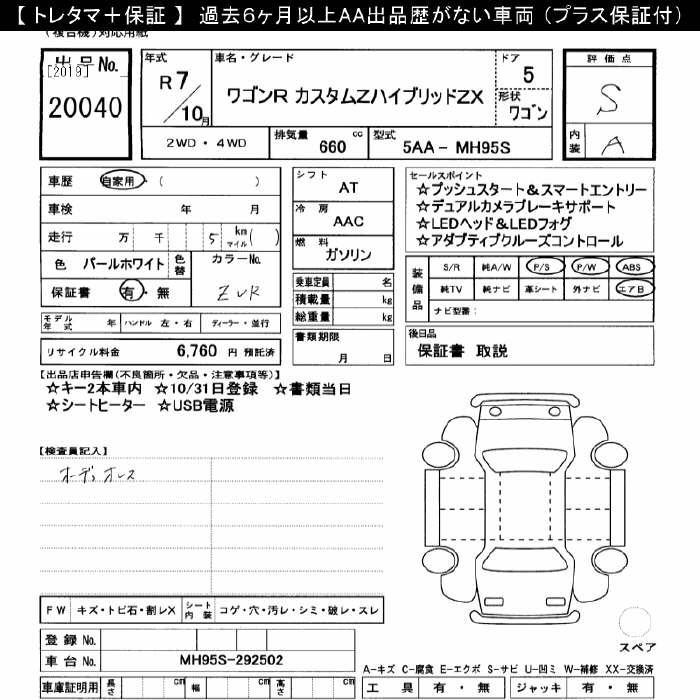 【 トレタマ＋保証 】 過去6ヶ月以上AA出品歴がない車両 (プラス保証付)
(複合機)対応用紙
出品No.
[2019]
20040
年式
R7/10月
車名・グレード
ワゴンR カスタムZハイブリッドZX
ドア
5
形状
ワゴン
評価点
S
内装
A
2WD ・ 4WD
排気量
660 cc
型式
5AA - MH95S
車歴 自家用 ・ ( )
車検 年 月
走行 万 千 5 km マイル ( )
色 パールホワイト
色替
カラーNo.
ZVR
保証書 有 ・ 無
モデル年式 年
ハンドル 左・右
ディーラー・並行
リサイクル料金 6,760 円 預託済
シフト
AT
冷房
AAC
燃料
ガソリン
乗車定員 名
積載量 kg
総重量 kg
書類期限
月 日
セールスポイント
☆プッシュスタート＆スマートエントリー
☆デュアルカメラブレーキサポート
☆LEDヘッド＆LEDフォグ
☆アダプティブクルーズコントロール
装備品
S/R 純A/W P/S P/W ABS
純TV 純ナビ 革シート 外ナビ エアB
ナビ型番:
後日品
保証書 取説
【出品店申告欄(不良箇所・欠品・注意事項等)】
☆キー2本車内 ☆10/31日登録 ☆書類当日
☆シートヒーター ☆USB電源
【検査員記入】
オーディオレス
FW キズ・トビ石・割レX
シート内装 コゲ・穴・汚レ・シミ・破レ・スレ
登録 No.
車台 No. MH95S-292502
車庫証明用 長さ cm 幅 cm 高さ cm
スペア
A-キズ C-腐食 E-エクボ S-サビ U-凹ミ W-補修 XX-交換済
工具 有 ・ 無 ジャッキ 有 ・ 無